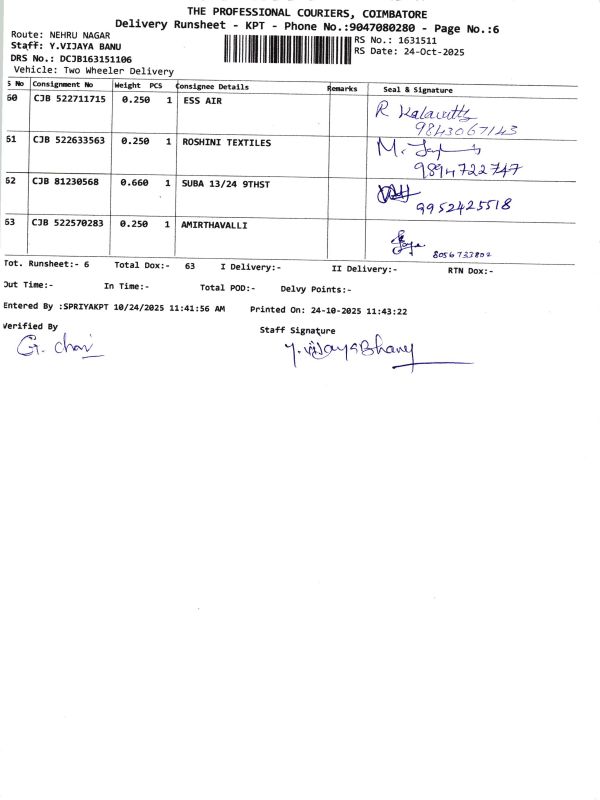 THE PROFESSIONAL COURIERS, COIMBATORE
Delivery Runsheet - KPT - Phone No.:9047080280 - Page No.:6
Route: NEHRU NAGAR
RS No.: 1631511
Staff: Y.VIJAYA BANU
RS Date: 24-Oct-2025
DRS No.: DCJB163151106
Vehicle: Two Wheeler Delivery
S No Consignment No Weight PCS Consignee Details Remarks Seal & Signature
60 CJB 522711715 0.250 1 ESS AIR
R Kalavathy
9843067143
61 CJB 522633563 0.250 1 ROSHINI TEXTILES
M.
9894722747
62 CJB 81230568 0.660 1 SUBA 13/24 9THST
9952425518
63 CJB 522570283 0.250 1 AMIRTHAVALLI
8056733802
Tot. Runsheet:- 6 Total Dox:- 63 I Delivery:- II Delivery:- RTN Dox:-
Out Time:- In Time:- Total POD:- Delvy Points:-
Entered By :SPRIYAKPT 10/24/2025 11:41:56 AM Printed On: 24-10-2025 11:43:22
Verified By
Staff Signature
G.
Y.